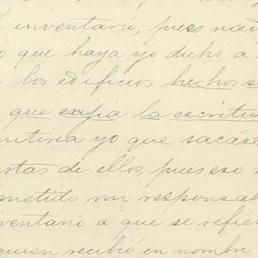 inventario, pues nad
o que haya yo dicho a
los edificios hechos s
que exijia la escritu
ntiria yo que sacase
rtas de ellos, pues eso
metido mi responsa
ventario a que se refie
quien recibió en nombre